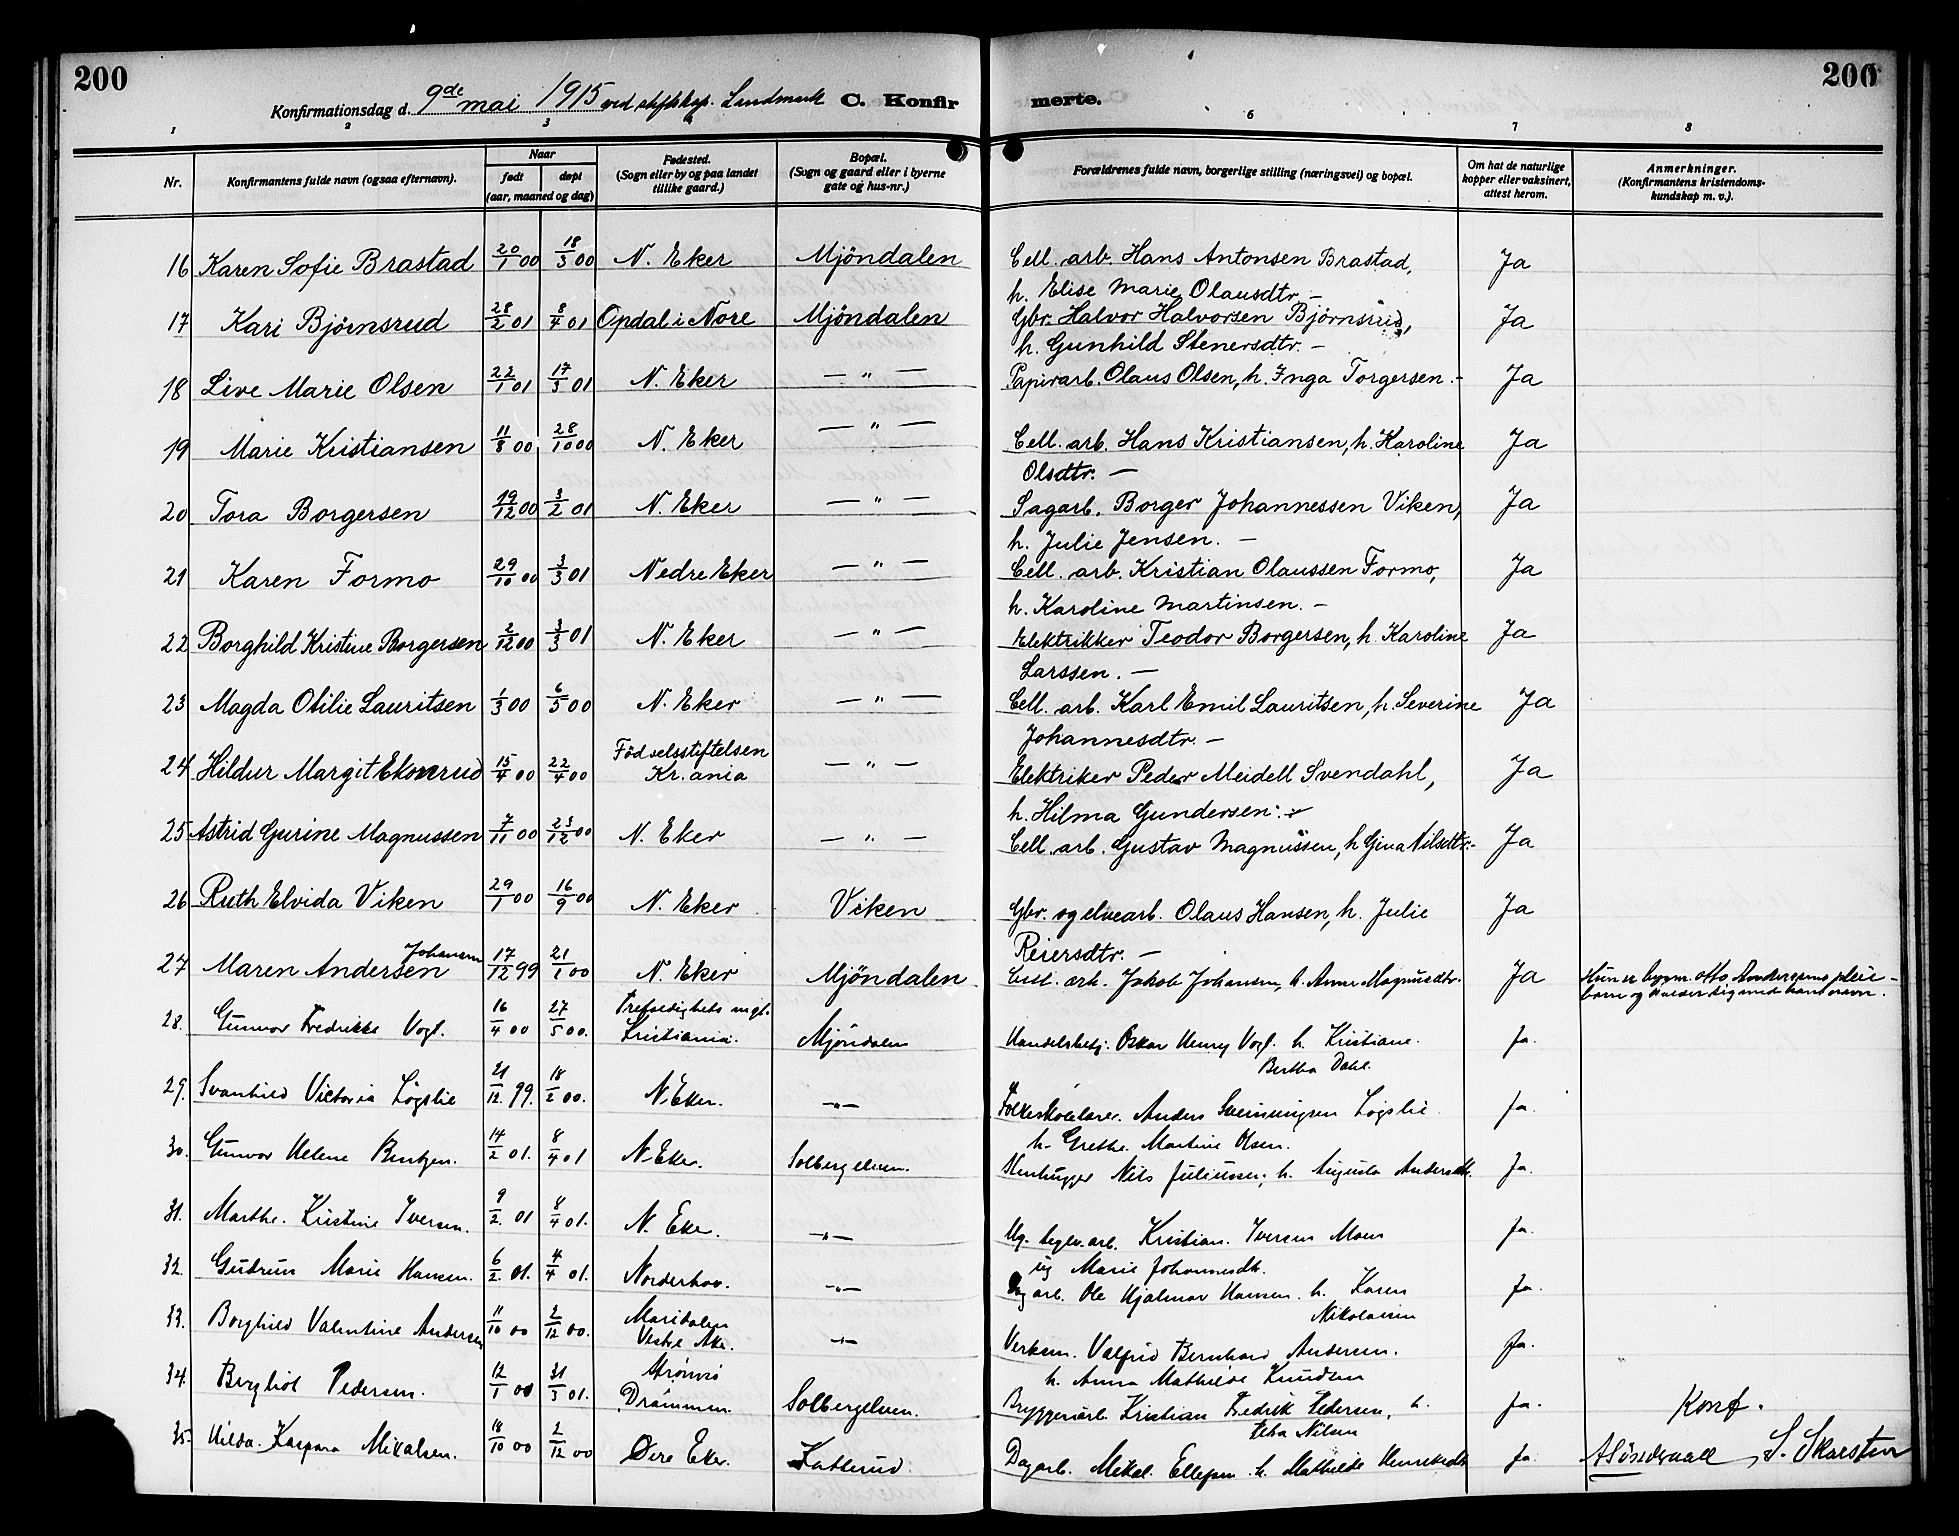 200
200
Konfirmationsdag d. 9de mai 1915 ved stiftskap. Landmark C. Konfirmerte.
1 2 3 4 5 6 7 8
Nr. Konfirmantens fulde navn (ogsaa efternavn). Naar født døpt (aar, maaned og dag) Fødested. (Sogn eller by og paa landet tillike gaard.) Bopæl. (Sogn og gaard eller i byerne gate og hus-nr.) Forældrenes fulde navn, borgerlige stilling (næringsvei) og bopæl. Om hat de naturlige kopper eller vaksinert, attest herom. Anmerkninger. (Konfirmantens kristendoms-kundskap m. v.).
16 Karen Sofie Brastad 20/1 00 18/3 00 N. Eker Mjöndalen Cell. arb. Hans Antonsen Brastad, Ja
h. Elise Marie Olausdtr. –
17 Kari Bjørnsrud 28/2 01 8/4 01 Opdal i Nore Mjöndalen Gbr. Halvor Halvorsen Bjørnsrud, Ja
h. Gunhild Stenersdtr. –
18 Live Marie Olsen 22/1 01 17/3 01 N. Eker — " — Papirarb. Olaus Olsen, h. Inga Torgersen. – Ja
19 Marie Kristiansen 11/8 00 28/10 00 N. Eker — " — Cell. arb. Hans Kristiansen, h. Karoline Ja
Olsdtr. —
20 Tora Borgersen 19/12 00 3/2 01 N. Eker — " — Sagarb. Borger Johannessen Viken, Ja
h. Julie Jensen. —
21 Karen Formo 29/10 00 3/3 01 Nedre Eker — " — Cell. arb. Kristian Olaussen Formo, Ja
h. Karoline Martinsen. –
22 Borghild Kristine Borgersen 2/12 00 3/3 01 N. Eker — " — Elektrikker Teodor Borgersen, h. Karoline Ja
Larssen. —
23 Magda Otilie Lauritsen 1/3 00 6/5 00 N. Eker — " — Cell. arb. Karl Emil Lauritsen, h. Severine Ja
Johannesdtr. –
24 Hildur Margit Ekornrud 15/4 00 22/4 00 Födselsstiftelsen Kr.ania — " — Elektriker Peder Meidell Svendahl, Ja
h. Hilma Gundersen.
25 Astrid Gurine Magnussen 7/11 00 23/12 00 N. Eker — " — Cell. arb. Gustav Magnüssen, h Gina Nilsdtr. – Ja
26 Ruth Elvida Viken 29/1 00 16/9 00 N. Eker Viken Gbr. og elvearb. Olaus Hansen, h. Julie Ja
Reiersdtr. —
27 Maren Andersen Johansen 17/12 99 21/1 00 N. Eker Mjöndalen Cell. arb. Jakob Johansen, h. Anne Magnusdtr. Ja Hun er bygm. Otto Andersens pleie-
barn og kalder sig med hans navn.
28. Gunvor Fredrikke Vogl. 16/4 00 27/5 00. Trefoldighets mgl. Kristiania. Mjöndalen Handelsbetj. Oskar Henry Vogl. h. Kristiane. Ja.
Bertha Dahl.
29. Svanhild Victoria Lögslie 21/12. 99. 18/2 00. N. Eker. — " — Folkeskolelærer. Anders Sveinungsen Lögslie Ja.
h. Grethe. Martine Olsen.
30. Gunvor Helene Bentzen. 14/2 01. 8/4 01 N. Eker. Solbergelven. Stenhugger Nils Juliussen, h. Augusta Andersdtr. Ja.
31. Marthe. Kristine Iversen. 9/2. 01 8/4 01. N. Eker. — " — Ug. teglv. arb. Kristian. Iversen Moen Ja.
ug Marie Johannesdtr.
32. Gudrun Marie Hansen. 6/2. 01. 4/4 01. Norderhov. — " — Dagarb. Ole Hjalmar Hansen. h. Karen Ja.
Nikolaisen
33. Borghild Valentine Andersen 11/10 00 2/12 00. Maridalen Vestre Aker. — " — Verksm. Valfrid Bernhard Andersen. Ja.
h. Anna Mathilde Knudsen
34. Bergliot Pedersen. 12/1 00 31/3 01. Strömsö Drammen. Solbergelven. Bryggeriarb. Kristian Fredrik Pedersen, h. Ja. Konf.
Petra Nilsen
35. Hilda. Kaspara Mikalsen. 18/10 00 2/12 00 Övre Eker. Katterud Dagarb. Mikal. Ellefsen. h. Mathilde Henriksdtr Ja. S. Skarsten